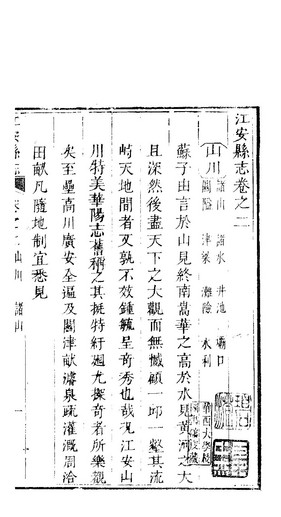 江安縣志卷之二
山川 諸山 諸水 井池 壩口
關隘 津梁 灘險 水利
蘇子由言於山見終南嵩華之高於水見黄河之大
且深然後盡天下之大觀而無憾顧一邱一壑其流
峙天地間者又孰不效鍾毓呈奇秀也哉況江安山
川特美華陽志舊稱之其挺特紆迴尤探奇者所樂觀
矣至壘高川廣安全逼及關津畎澮泉疏灌溉周洽
田畝凡隨地制宜悉見
江安縣志 卷之二 山川 諸山
華西大學校